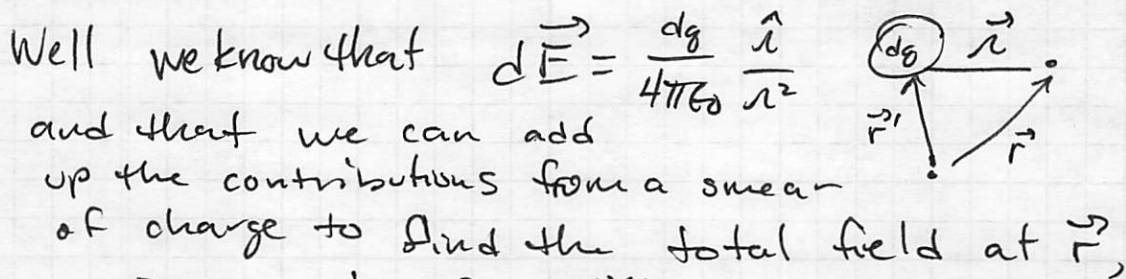 Well we know that dE⃗ = dq/4πε₀ 𝓇̂/𝓇² dq 𝓇⃗
and that we can add r⃗' r⃗
up the contributions from a smear
of charge to find the total field at r⃗,